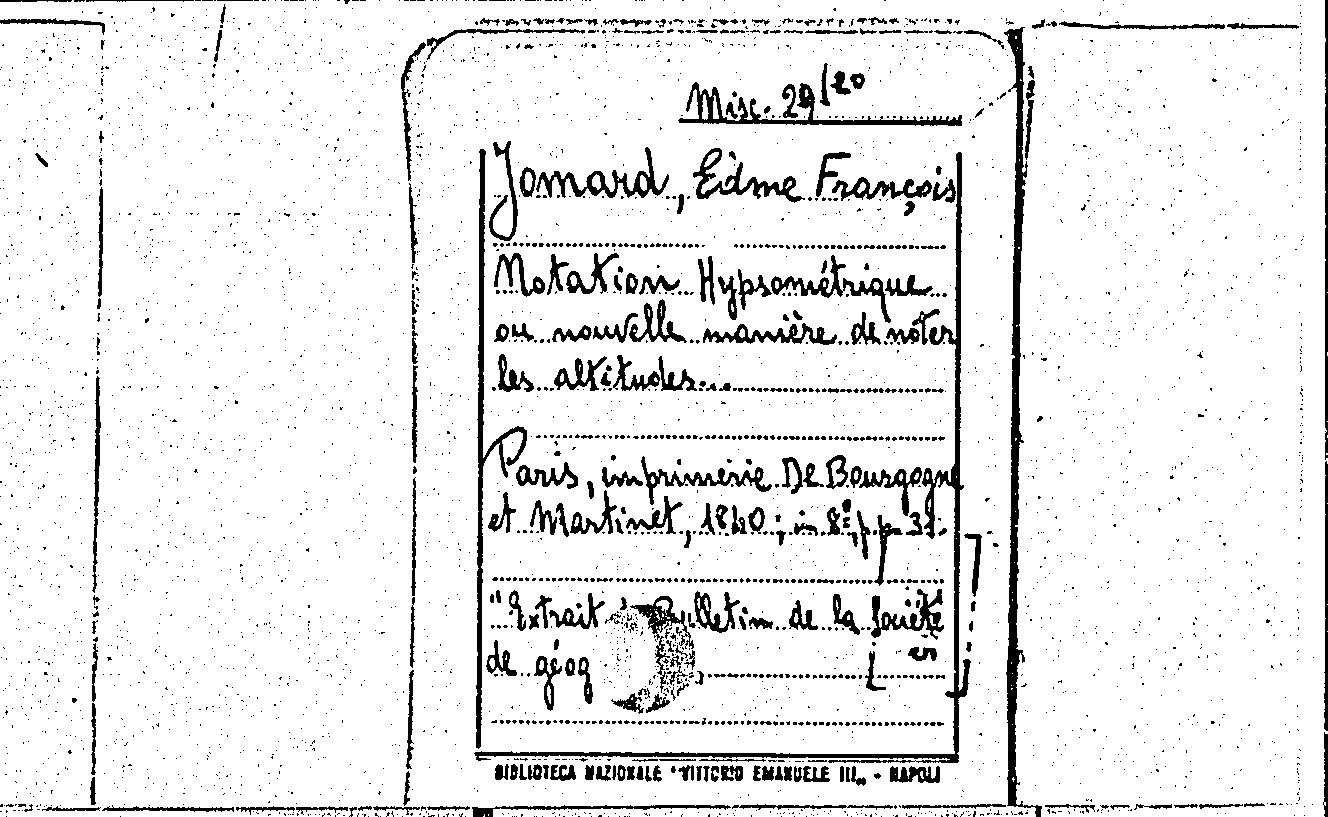 Misc. 29/20
Jomard, Edme François
Notation Hypsométrique
ou nouvelle manière de noter
les altitudes...
Paris, imprimerie De Bourgogne
et Martinet, 1840; in 8º, pp 31.
"Extrait Bulletin de la Société
de géog
BIBLIOTECA NAZIONALE "VITTORIO EMANUELE III„ - NAPOLI